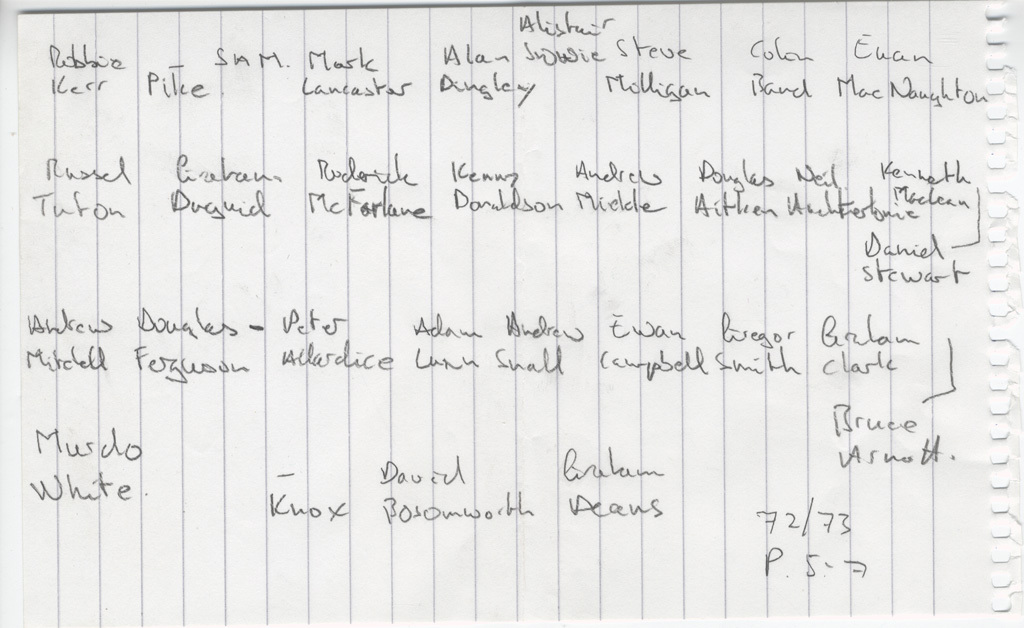 Alistair
Robbie - S.A.M. Mark Alan Snowie Steve Colon Ewan
Kerr Pike Lancaster Dingley Milligan Band MacNaughton
Russel Graham Roderick Kenny Andrew Douglas Neil Kenneth
Tuton Duguid McFarlane Donaldson Mickle Aitken Auchterlonie Maclean
Daniel
Stewart
Andrew Douglas - Peter Adam Andrew Ewan Gregor Graham
Mitchell Ferguson Allardice Lunn Snall Campbell Smith Clark
Bruce
Arnott.
Murdo
White.
- David Graham
Knox Bosomworth Deans
72/73
P. 5-7